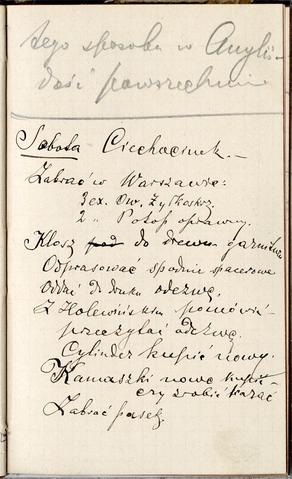 tego sposobu w Angli
dość powszechnie
Sobota Ciechocinek. –
Zabrać w Warszawie:
3 ex. Ow. Żytkoskr.
2 „ Potop oprawny.
Klosz pod do drewn garnitur
Odprasować spodnie spacerowe
Oddać do druku odezwę.
Z Holewińskim pomówić
przeczytać odezwę.
Cylinder kupić nowy.
Kamaszki nowe kupić
czy zrobić kazać
Zabrać pasek.